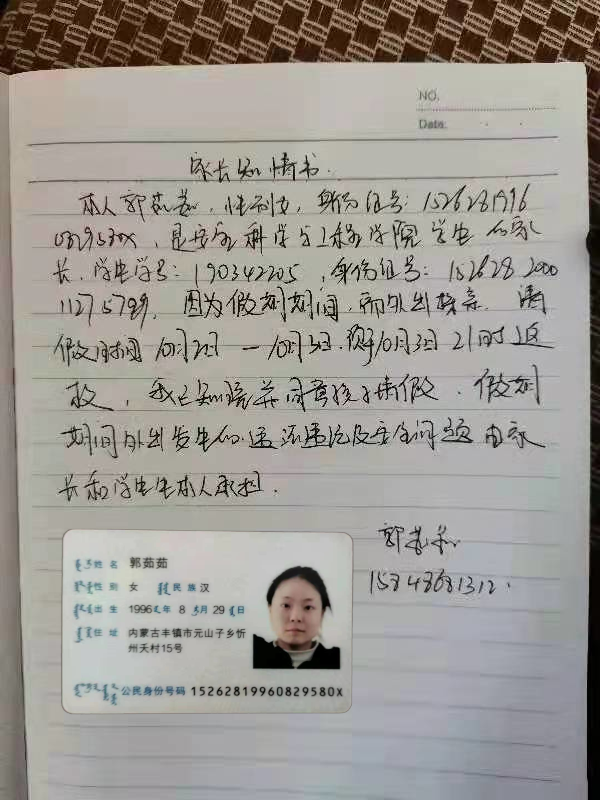 NO.
Date:
家长知情书.
本人郭茹茹，性别女，身份证号：1526281996
0829580X，是安全科学与工程学院学生的家
长．学生学号：190342205，身份证号：152628 2000
1127，因为假期期间，需外出探亲．请
假时间10月2日—10月3日．预于10月3日21时返
校，我已知晓并同意孩子请假．假期
期间外出发生的违法违纪及安全问题由家
长和学生本人承担．
郭茹茹
15848681312.
姓名 郭茹茹
性别 女 民族 汉
出生 1996年8月29日
住址 内蒙古丰镇市元山子乡忻
州夭村15号
公民身份号码 15262819960829580X